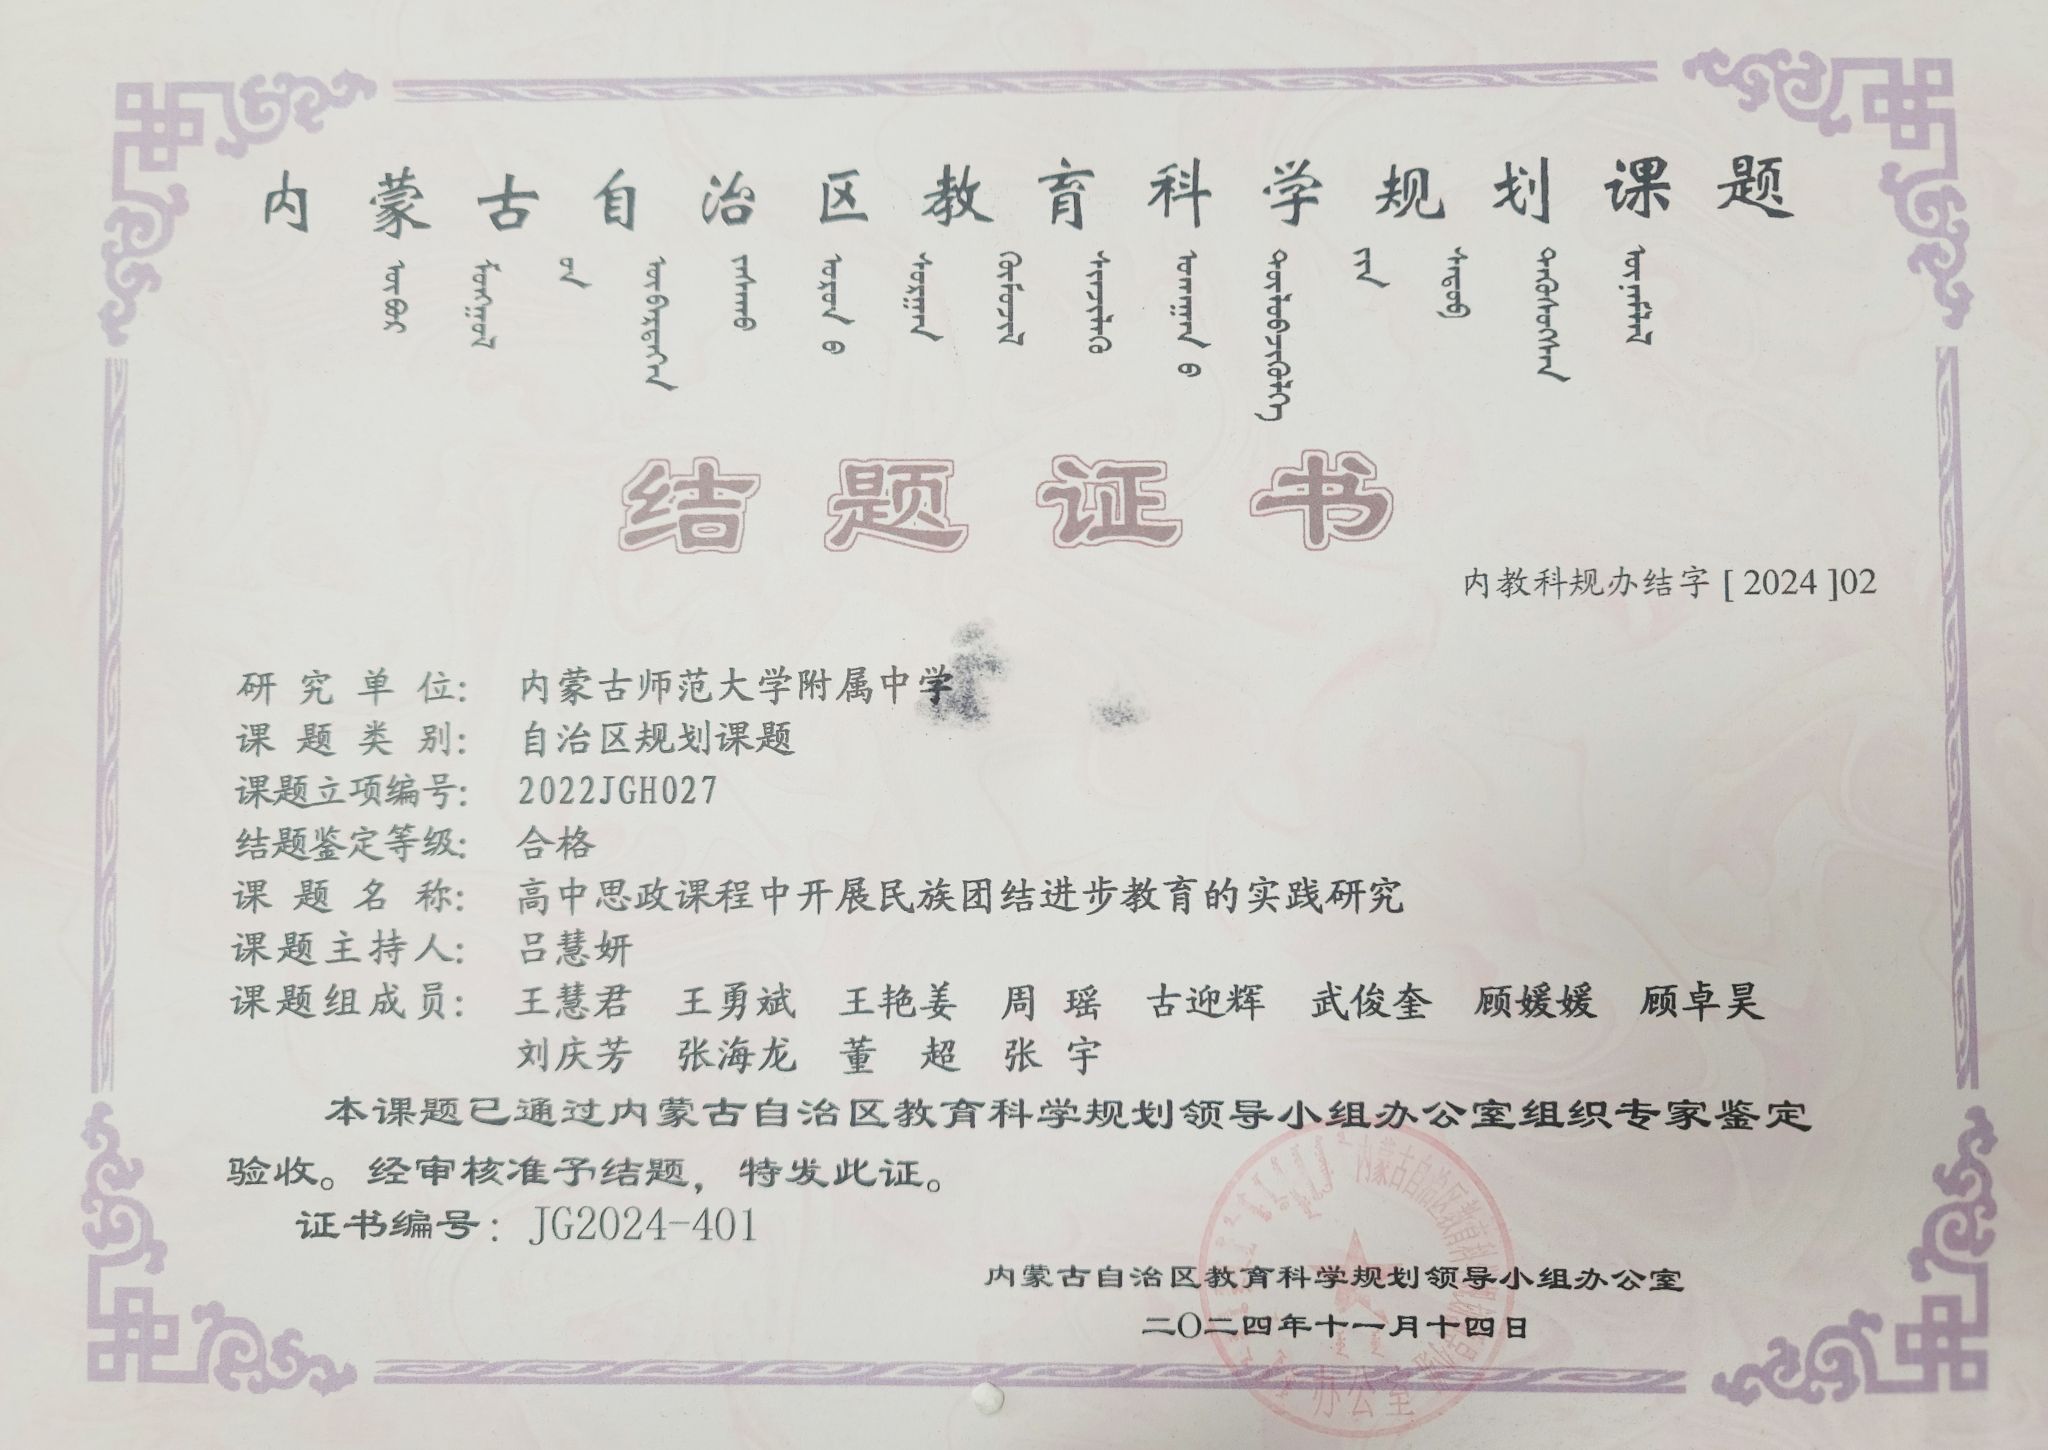 内蒙古自治区教育科学规划课题
结题证书
内教科规办结字 [ 2024 ]02
研究单位： 内蒙古师范大学附属中学
课题类别： 自治区规划课题
课题立项编号： 2022JGH027
结题鉴定等级： 合格
课题名称： 高中思政课程中开展民族团结进步教育的实践研究
课题主持人： 吕慧妍
课题组成员： 王慧君 王勇斌 王艳姜 周瑶 古迎辉 武俊奎 顾媛媛 顾卓昊
刘庆芳 张海龙 董超 张宇
本课题已通过内蒙古自治区教育科学规划领导小组办公室组织专家鉴定
验收。经审核准予结题，特发此证。
证书编号：JG2024-401
内蒙古自治区教育科学规划领导小组办公室
二〇二四年十一月十四日